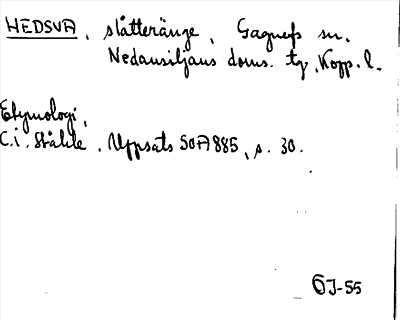 HEDSVA, slåtteränge, Gagnefs sn.
Nedansiljans doms. tg, Kopp. l.
Etymologi,
C.i. Ståhle, Uppsats SOA 885, s. 30.
ÖJ-55